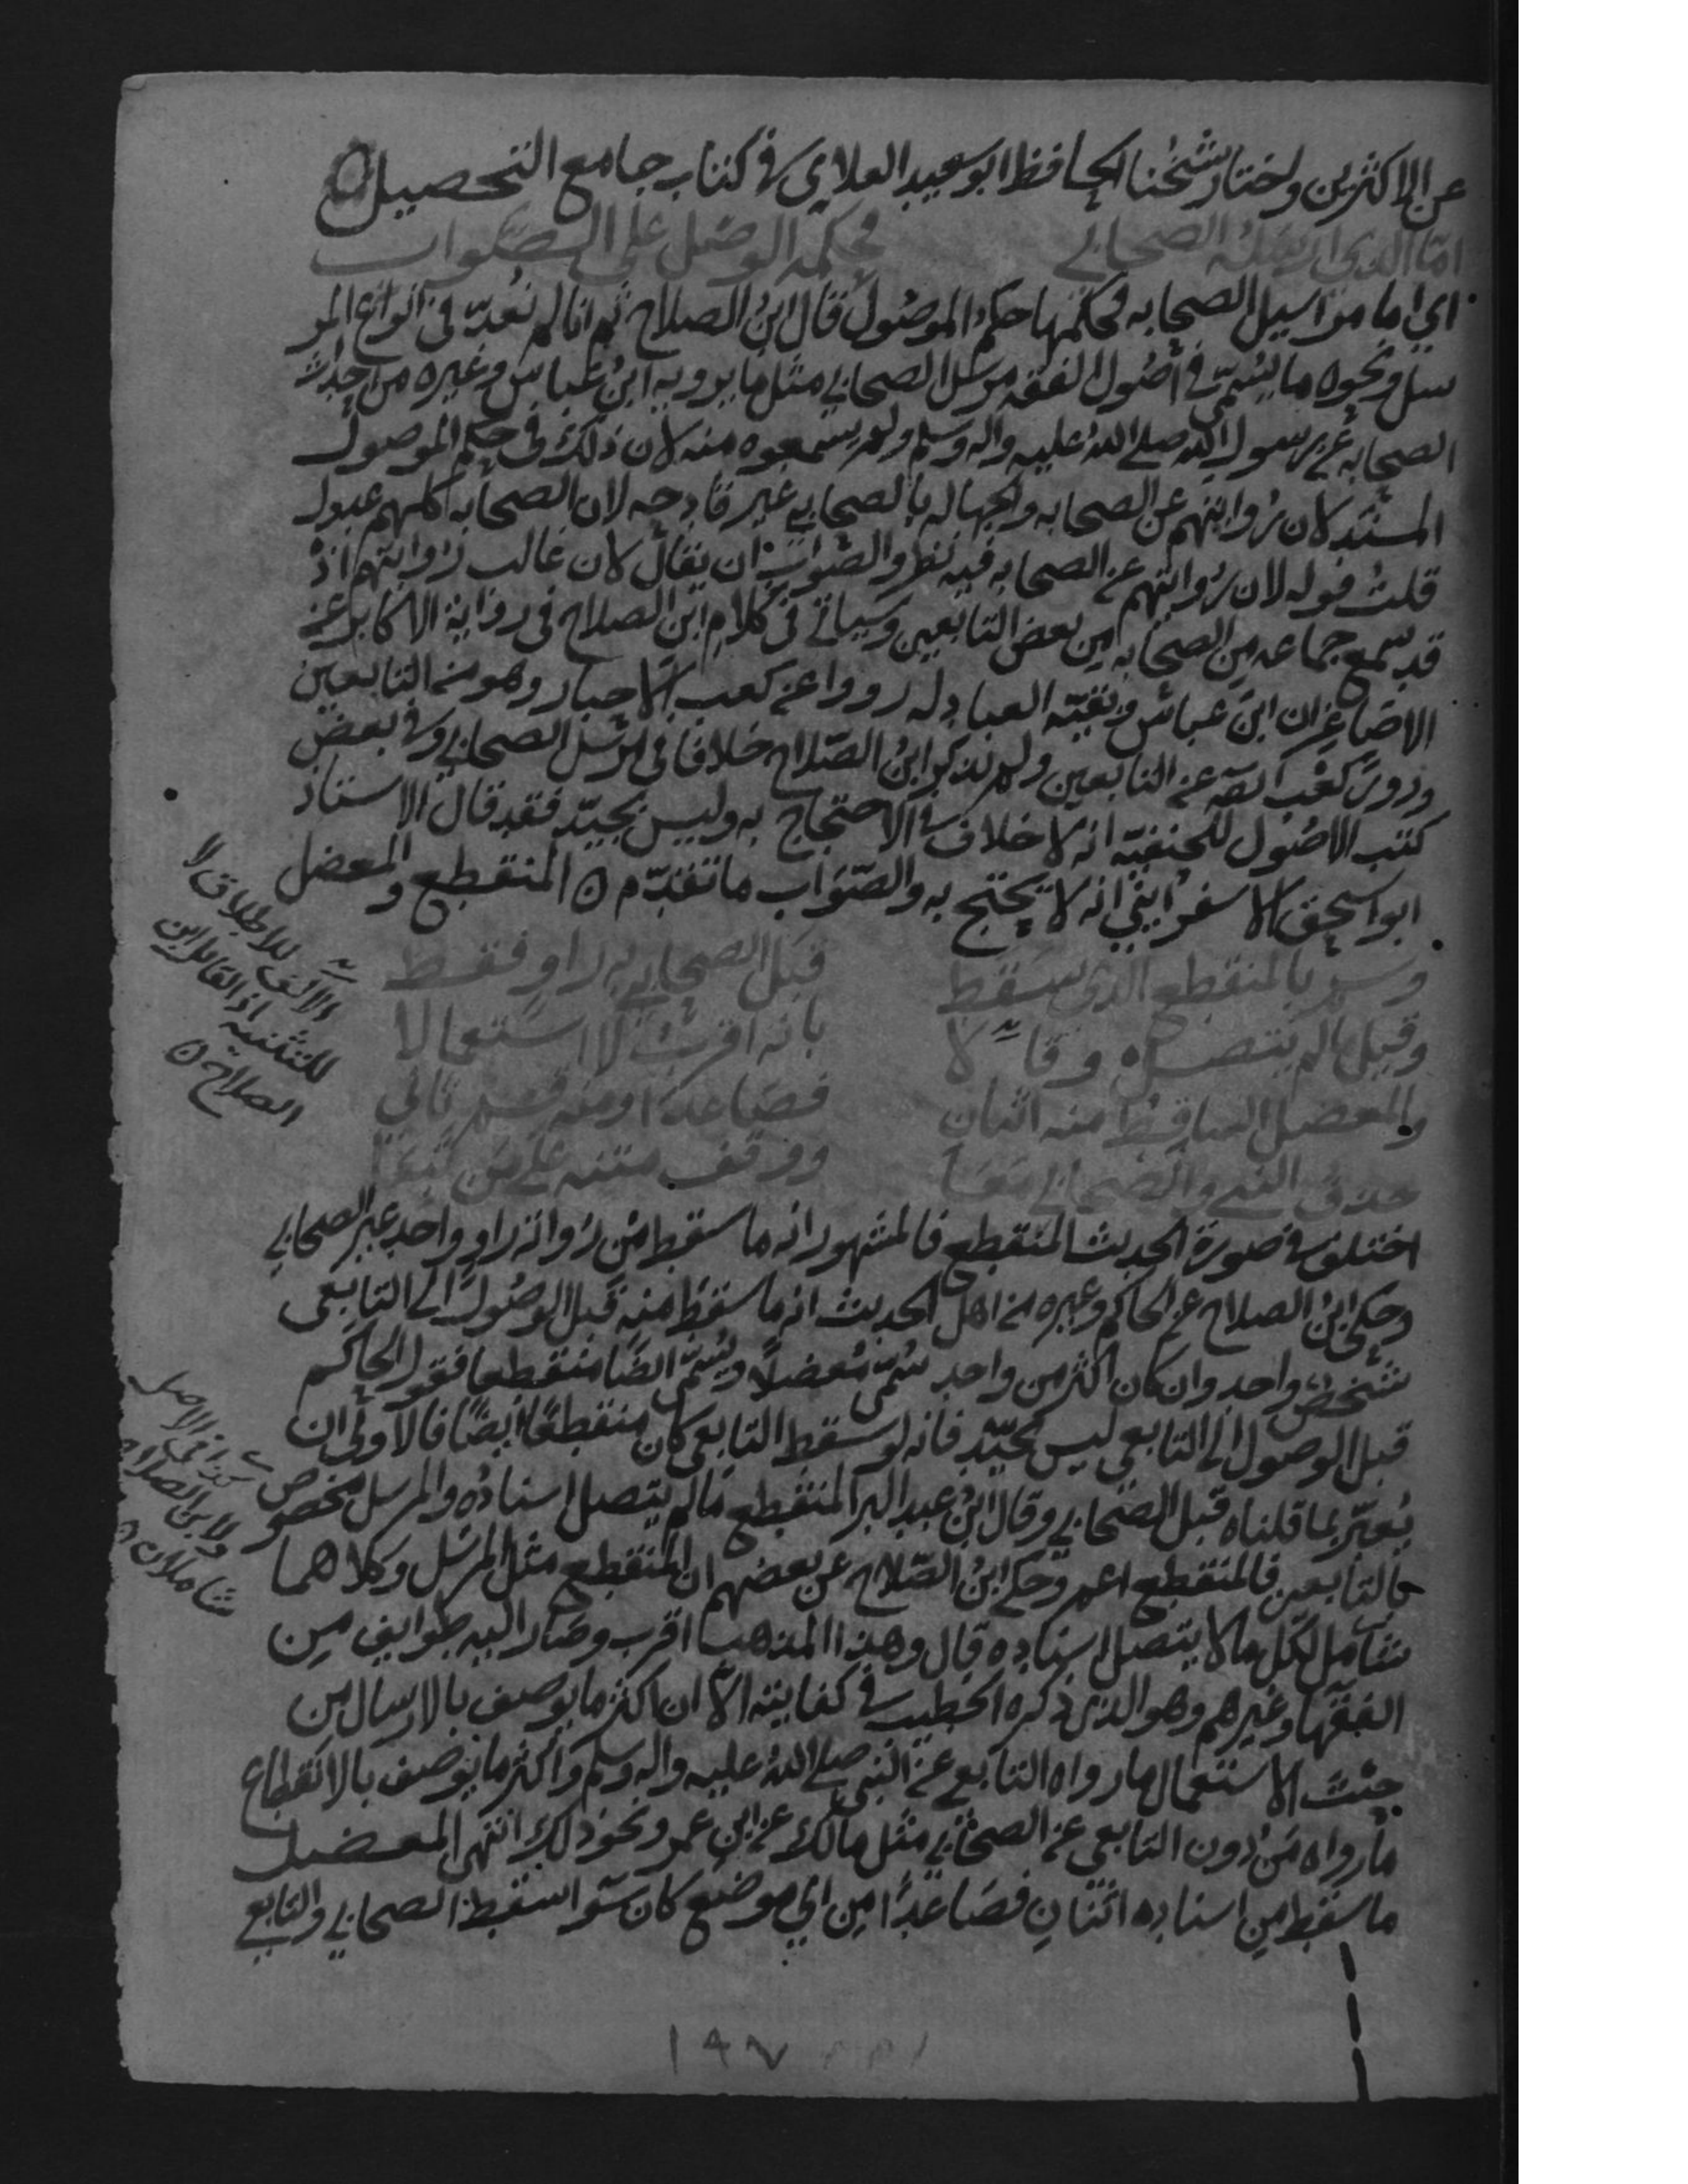 عن الاكثرين واختار شيخنا الحافظ ابو سعيد العلاي في كتاب جامع التحصيل ه
امّا الذي ارسله الصحابي فحكمه الوصل على الصواب
اي اما مراسيل الصحابه فحكمها حكم الموصُول قال ابنُ الصلاح ثم انا لم نعُدّ في انواع المر
سل ونحوه ما يُسمّى في أصُول الفقه مرسَل الصحابي مثل ما يرويه ابنُ عباس وغيره من احداث
الصحابه عن رسول الله صلى الله عليه واله وسلم ولم يسمعوه منه لان ذلك في حكم الموصول
المسنَد لان رُوايتهم عن الصحابه والجهاله بالصحابي غير قادحه لان الصحابه كلهم عدول
قلت قوله لان رُوايتهم عن الصحابه فيه نظر والصّواب ان يقال لان غالب رُوايتهم اذ
قد سمع جماعه من الصحابه من بعض التابعين وسياتي في كلام ابن الصلاح في رواية الاكابر عن
الاصاغر ان ابن عباس وبقيّه العبادله رووا عن كعب الاحبار وهو من التابعين
وروى كعْب ايضا عن التابعين ولم يذكر ابنُ الصّلاح خلافا في مرسَل الصحابي وفي بعض
كتب الاصُول للحنفيّه انه لا خلاف في الاحتجاج به وليس بجيّد فقد قال الاستاذ
ابو اسحق الاسفرايني انه لا يحتج به والصّواب ما تقدّم ه المنقطع والمعضل
وسم بالمنقطع الذي سقط قبل الصحابي به راو فقط
وقيل ما لم يتصل وقالا بانه اقرب لا استعمالا
والمعضل الساقط منه اثنان فصاعدًا ومنه قسم ثاني
حذف النبي والصحابي معَا ووقف متنه على من تبعَا
الالف للاطلاق لا
للتثنيه اذ القايل ابن
الصلاح ه
اختلف في صورة الحديث المنقطع فالمشهور انه ما سقط من رُواته راو واحد غير الصحابي
وحكى ابنُ الصلاح عن الحاكم وغيره من اهل الحديث انه ما سقط منه قبل الوصُول الى التابعي
شخص واحد وان كان اكثر من واحد سُمّي مُعضلاً ويُسمّى ايضًا منقطعا فقول الحاكم
قبل الوصول الى التابعي ليس بجيّد فانه لو سقط التابعي كان منقطعًا ايضًا فالاولى ان
يُعبّر بما قلناه قبل الصّحابي وقال ابنُ عبد البر المنقطع ما لم يتصل اسنادُه والمرسل مخصوص
بالتابعين فالمنقطع اعم وحكى ابنُ الصّلاح عن بعضهم ان المنقطع مثل المرسَل وكلاهما
كذا في الاصل
ولابن الصلاح
شاملان ه
شامل لكل ما لا يتصل اسناده قال وهذا المذهب اقرب وصَار اليه طوايف مِن
الفقها وغيرهم وهو الذي ذكره الخطيب في كفايته الاّ ان اكثر ما يوصف بالارسال من
حيث الاستعمال ما رواه التابعي عن النبي صلى الله عليه واله وسلم واكثر ما يوصف بالانقطاع
ما رواه مَن دون التابعي عن الصحابي مثل مالك عن ابن عمر ونحو ذلك انتهى المعضل
ما سقط من اسناده اثنانِ فصَاعدًا مِن اي موضع كان سَوا سقط الصحابي والتابعي
١٩٧